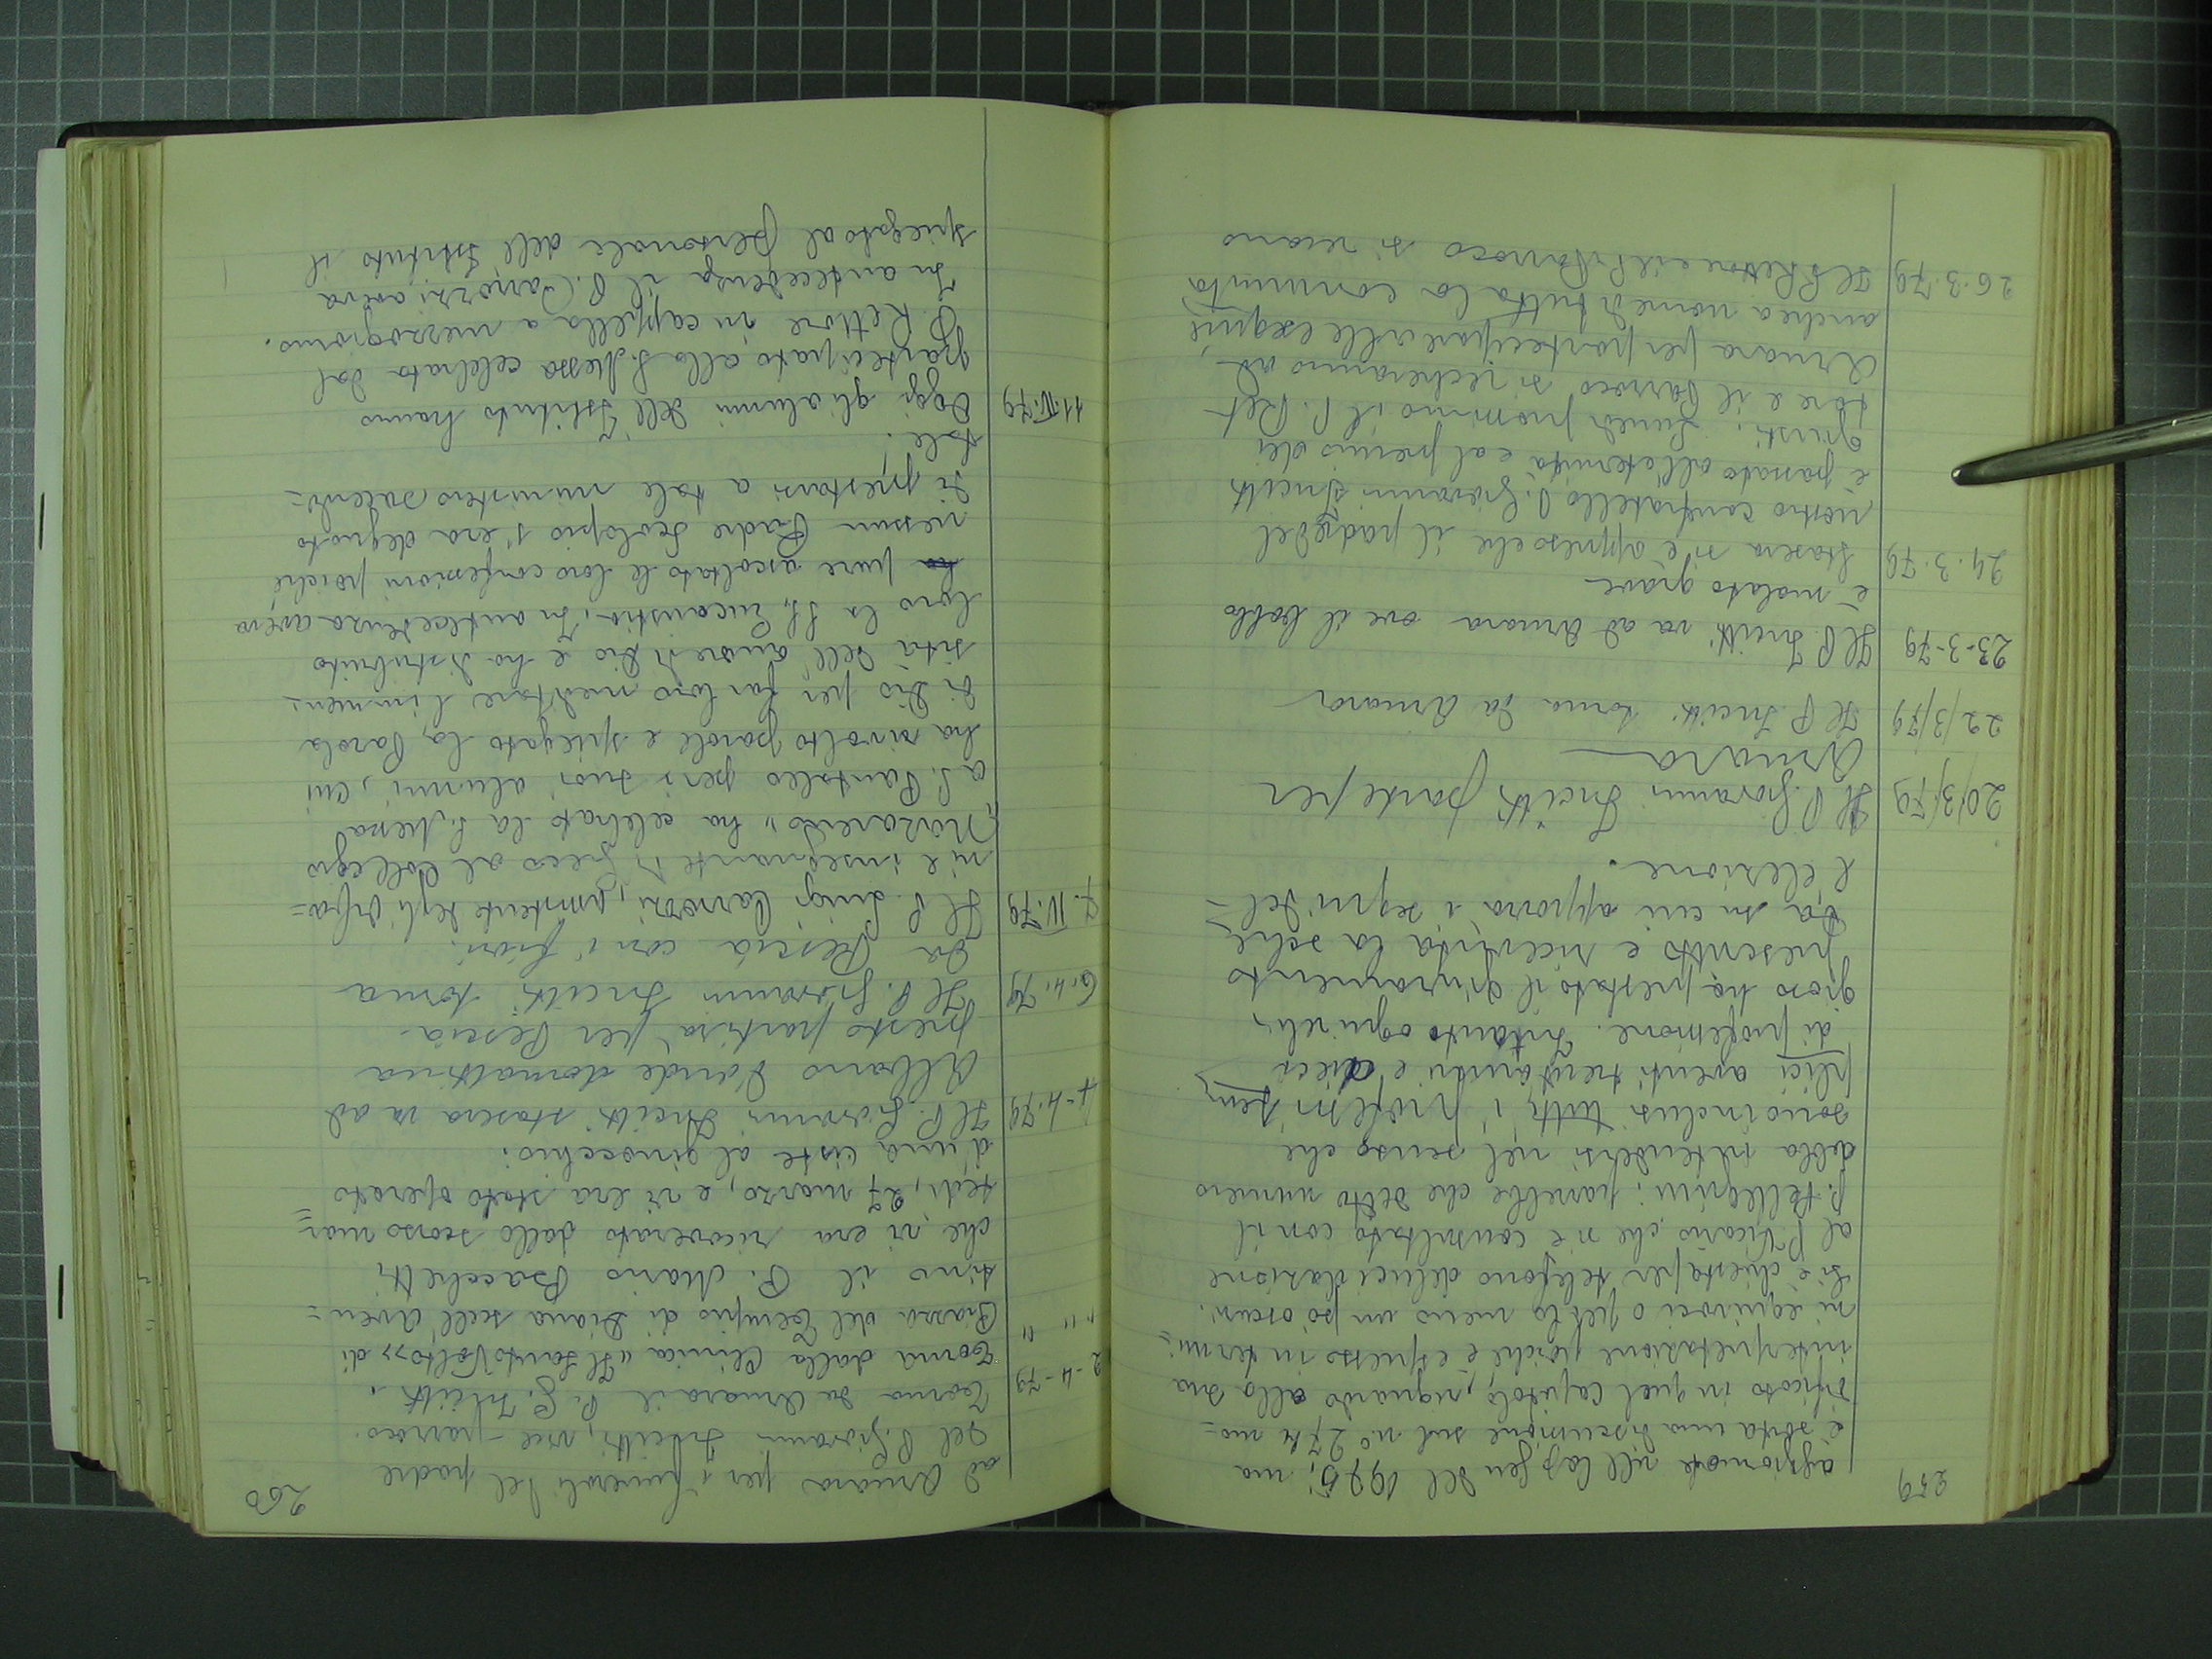 259
aggiornate nell Cap Gen del 1975; ma
è sorta una discussione sul n° 274 mo=
dificato in quel Capitolo, riguardo alla sua
interpretazione poiché è espresso in termi=
ni equivoci o per lo meno un po' oscuri.
Si è chiesta per telefono delucidazione
al P. Vicario, che si è consultato con il
P. Pellegrini; parrebbe che detto numero
debba intendersi nel senso che
sono inclusi tutti i profesi sem=
plici aventi trent'anni e dieci
di professione. Intanto ogni reli=
gioso ha prestato il giuramento
prescritto e ricevuta la sche=
da su cui apporrà i segni del=
l'elezione.
20/3/79 Il P. Giovanni Incitti parte per
Arnara
22/3/79 Il P. Incitti torna da Arnara
23-3-79 Il P. Incitti va ad Arnara ove il babbo
è malato grave
24.3.79 Stasera si è appreso che il padre del
nostro confratello P. Giovanni Incitti
è passato all'eternità e al premio dei
giusti. Lunedì prossimo il P. Ret=
tore e il Parroco si recheranno ad
Arnara per partecipare alle esequie
anche a nome di tutta la comunità
26.3.79 Il P. Rettore e il P. Parroco si recano
260
ad Arnara per i funerali del padre
del P. Giovanni Incitti, vice-parroco.
Torna da Arnara il P. G. Incitti.
2-4-79 Torna dalla Clinica "Il Santo Volto" di
" " " Piazza del Tempio di Diana sull'Aven=
tino il P. Mario Bacchetti
che vi era ricoverato dallo scorso mar=
tedì, 27 marzo, e vi era stato operato
d'una ciste al ginocchio.
4-4-79 Il P. Giovanni Incitti stasera va ad
Albano d'onde domattina
presto partirà per Pescia.
6.4.79 Il P. Giovanni Incitti torna
da Pescia con i fiori.
7.IV.79 Il P. Luigi Capozzi, assistente degli Orfa=
ni e insegnante di greco al Collegio
"Nazareno" ha celebrato la S. Messa
a S. Pantaleo per i suoi alunni, cui
ha rivolto parole e spiegato la Parola
di Dio per far loro meditare l'immen=
sità dell'amore di Dio e ha distribuito
loro la SS. Eucaristia. In antecedenza aveva
pure ascoltato le loro confessioni poiché
nessun Padre Scolopio s'era degnato
di prestarsi a tale ministero sacerdo=
tale.
11.IV.79 Oggi gli alunni dell'Istituto hanno
partecipato alla S. Messa celebrata dal
P. Rettore in cappella a mezzogiorno.
In antecedenza il P. Capozzi aveva
spiegato al personale dell'Istituto il